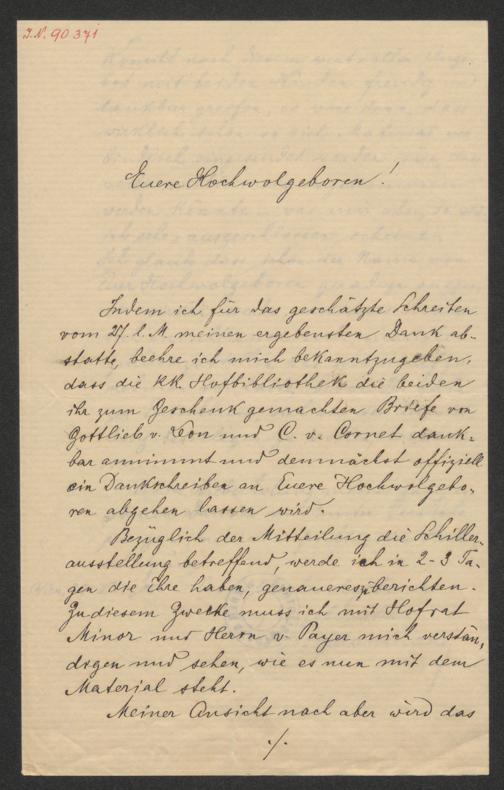 I.N. 90371
Euere Hochwolgeboren!
Indem ich für das geschätzte Schreiben
vom 27. l. M. meinen ergebensten Dank ab-
statte, beehre ich mich bekanntzugeben,
dass die kk. Hofbibliothek die beiden
ihr zum Geschenk gemachten Briefe von
Gottlieb v. Leon und C. v. Cornet dank-
bar annimmt und demnächst offiziell
ein Dankschreiben an Euere Hochwolgebo-
ren abgehen lassen wird.
Bezüglich der Mitteilung die Schiller-
ausstellung betreffend, werde ich in 2-3 Ta-
gen die Ehre haben, genaueres zu berichten.
Zu diesem Zwecke muss ich mit Hofrat
Minor und Herrn v. Payer mich verstän-
digen und sehen, wie es nun mit dem
Material steht.
Meiner Ansicht nach aber wird das
./.